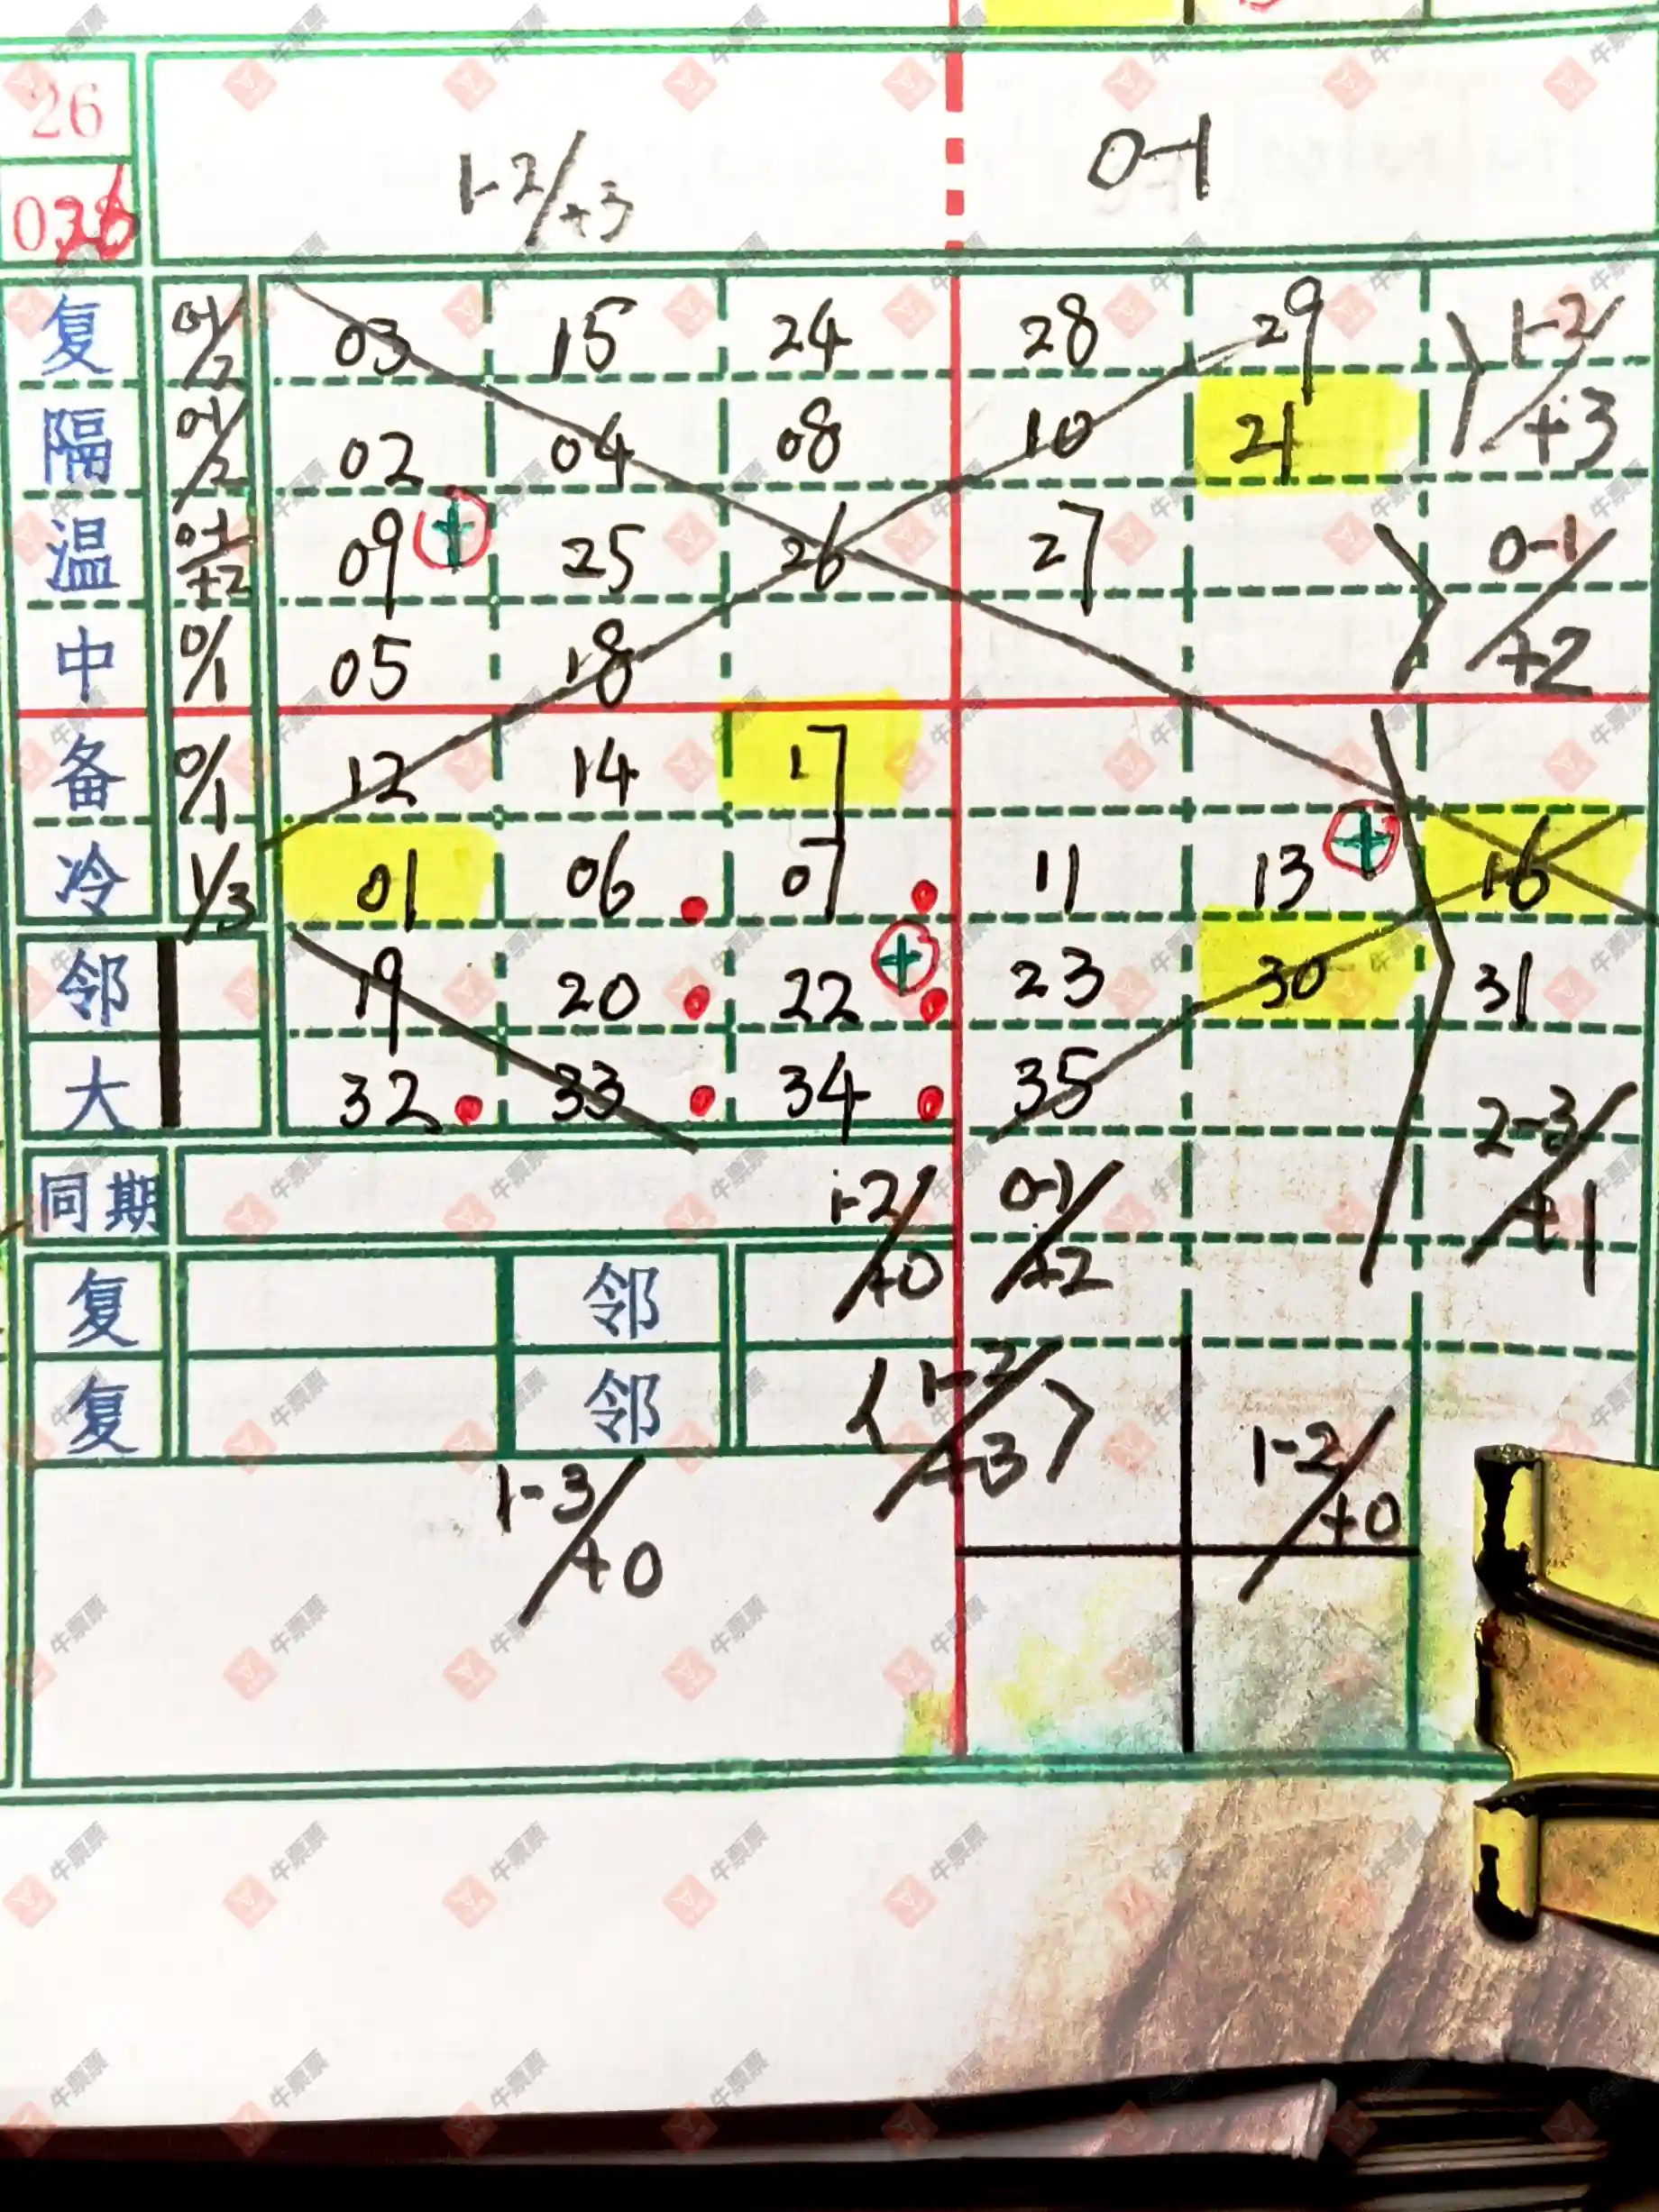 26
036
1-2/+3 0-1
复 0-1/2 03 15 24 28 29 1-2/+3
隔 0-1/2 02 04 08 10 21
温 0-1/+2 09 + 25 26 27 0-1/+2
中 0/1 05 18
备 0/1 12 14 17
冷 1/3 01 06 07 11 13 + 16
邻 19 20 22 + 23 30 31
大 32 33 34 35 2-3/+1
同期 1-2/+0 0-1/+2
复 邻
复 邻 1-2/+3
1-3/+0 1-2/+0
牛票票